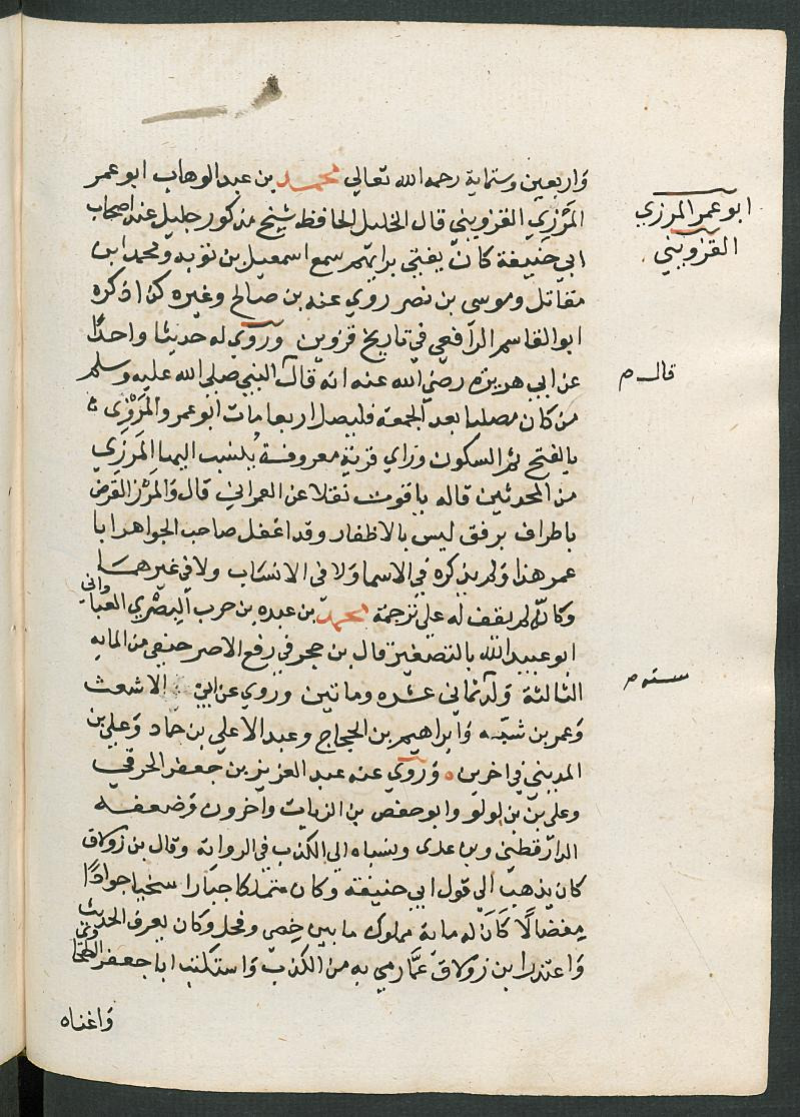 واربعين وستماية رحمه الله تعالي محمد بن عبد الوهاب ابو عمر
المَرْزِي القزويني قال الخليل الحافظ شيخ مذكور جليل عند اصحاب
ابي حنيفة كان يفتي برايهم سمع اسمعيل بن توبه ومحمد ابن
مقاتل وموسى بن نصر روي عنه بن صالح وغيره كذا ذكره
ابو القاسم الرافعي في تاريخ قزوين وروي له حديثا واحدا
عن ابي هريرة رضي الله عنه انه قال النبي صلى الله عليه وسلم
من كان مصليا بعد الجمعة فليصل اربعا مات ابو عمر والمَرْزِي
بالفتح ثم السكون وزاي قرية معروفة ينسب اليها المَرْزِي
من المحدثين قاله ياقوت نقلا عن العمراني قال والمَرْز القرص
باطراف برفق ليس بالاظفار وقد اغفل صاحب الجواهر ابا
عمر هذا ولم يذكره في الاسما ولا في الانساب ولا في غيرهما
وكانه لم يقف له علي ترجمة محمد بن عبده بن حرب البصري العباداني
ابو عبيد الله بالتصغير قال بن حجر في رفع الاصر حنفي من المايه
الثالثة ولد ثماني عشره وماتين وروي عن ابي الاشعث
وعمر بن شبه وابراهيم بن الحجاج وعبد الاعلي بن حماد وعلي بن
المديني في اخرين وروي عنه عبد العزيز بن جعفر الحرقي
وعلي بن بن لولو وابو حفص بن الزيات واخرون وضعفه
الدارقطني وبن عدى ونسباه الي الكذب في الرواية وقال بن زولاق
كان يذهب الي قول ابي حنيفة وكان متملكا جبارا سخيا جوادا
مفضالا كان له ماية مملوك ما بين خصي وفحل وكان يعرف الحديث
واعتذر ابن زولاق عمّا رمي به من الكذب واستكتب ابا جعفر الطحاوي
واغناه
ابو عمر المرزي
القزويني
قال م
سنه م